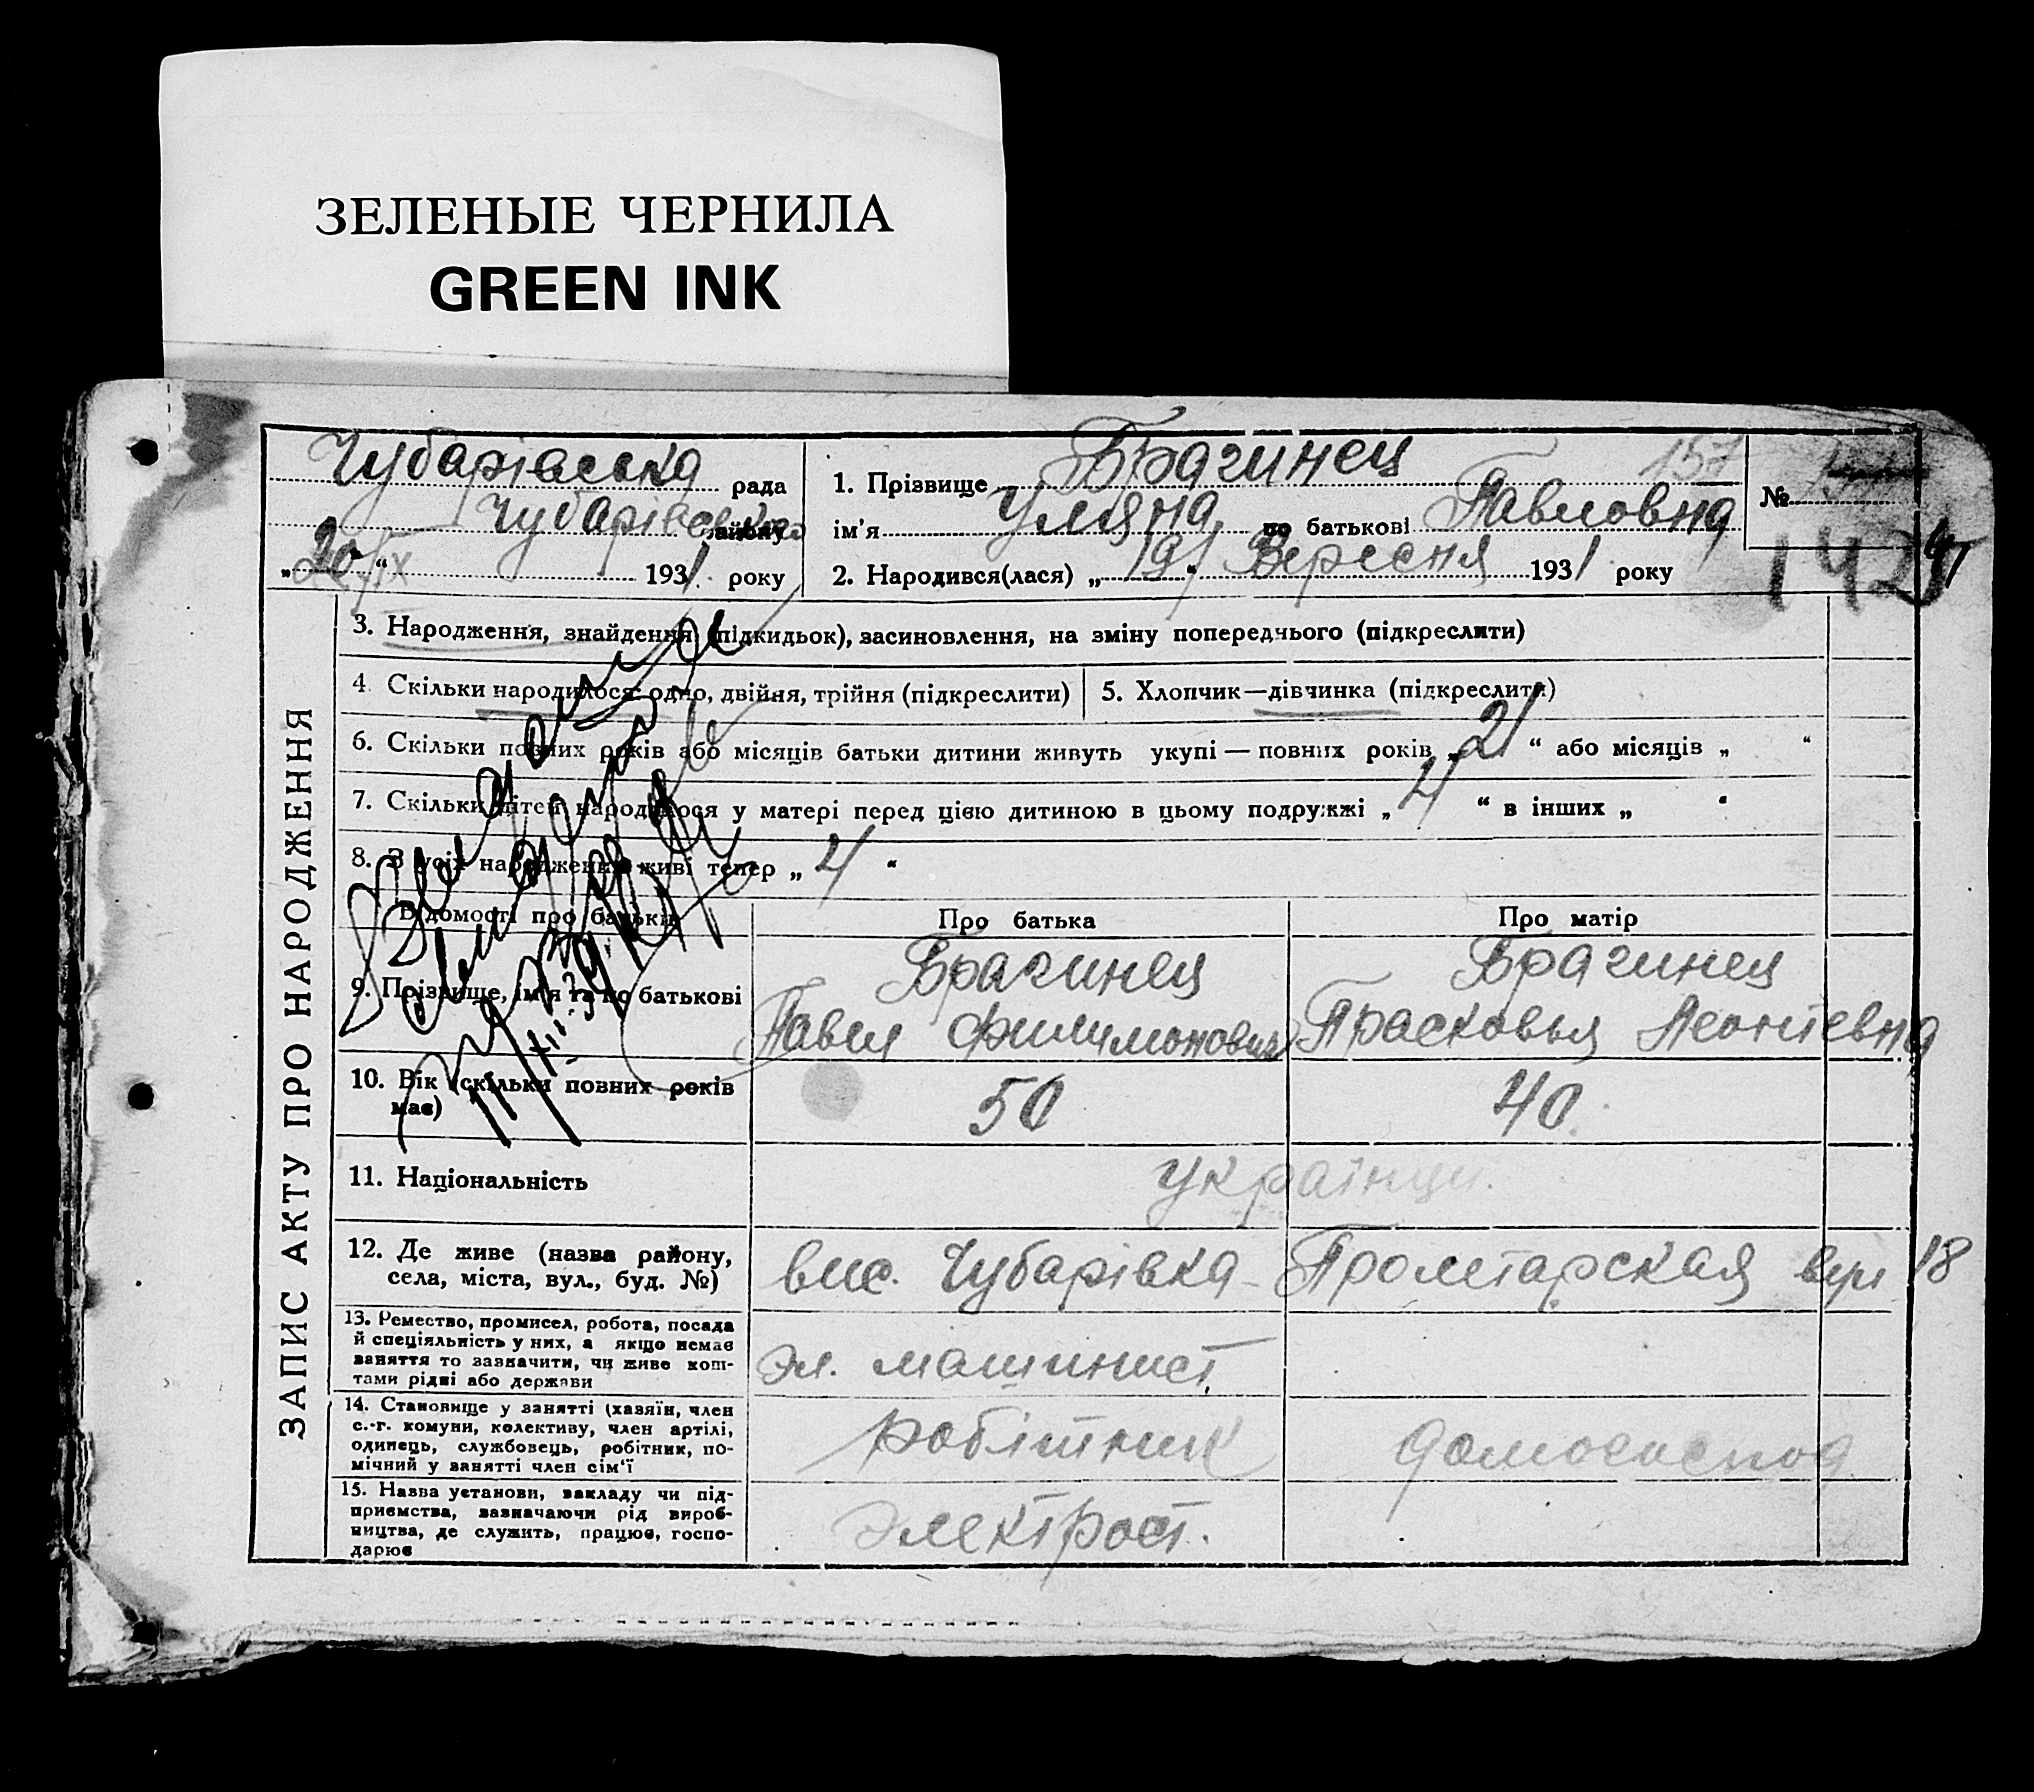 ЗЕЛЕНЫЕ ЧЕРНИЛА
GREEN INK
Чубарівська рада
Чубарівського району
„20“ IX 1931 року
1. Прізвище Брагинец 157
ім'я Уляна по батькові Павловна
2. Народився(лася) „19“ Вересня 1931 року
№
142
ЗАПИС АКТУ ПРО НАРОДЖЕННЯ
3. Народження, знайдення (підкидьок), засиновлення, на зміну попереднього (підкреслити)
4. Скільки народилося: одно, двійня, трійня (підкреслити)
5. Хлопчик—дівчинка (підкреслити)
6. Скільки повних років або місяців батьки дитини живуть укупі — повних років „21“ або місяців „ “
7. Скільки дітей народилося у матері перед цією дитиною в цьому подружжі „4“ в інших „ “
8. З усіх народжених живі тепер „4“
Відомості про батьків
Про батька
Про матір
9. Прізвище, ім'я та по батькові
Брагинец
Павел Филимонович
Брагинец
Прасковья Леонтевна
10. Вік (скільки повних років
має)
50
40
11. Національність
українци.
12. Де живе (назва району,
села, міста, вул., буд. №)
вис. Чубарівка Пролетарская 18
13. Ремество, промисел, робота, посада
й спеціяльність у них, а якщо немає
заняття то зазначити, чи живе кош-
тами рідні або держави
эл. машинист
14. Становище у занятті (хазяїн, член
с.-г. комуни, колективу, член артілі,
одинець, службовець, робітник, по-
мічний у занятті член сім'ї
робітник
домогоспод
15. Назва установи, закладу чи під-
приємства, зазначаючи рід вироб-
ництва, де служить, працює, госпо-
дарює
электрост.